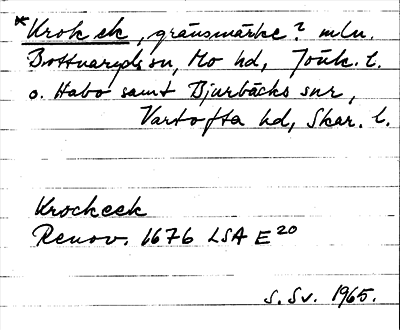 *Krok ek, gränsmärke? mln.
Bottnaryds sn, Mo hd, Jönk. l.
o. Habo samt Bjurbäcks snr,
Vartofta hd, Skar. l.
Krockeek
Renov. 1676 LSA E 20
S. Sv. 1965.